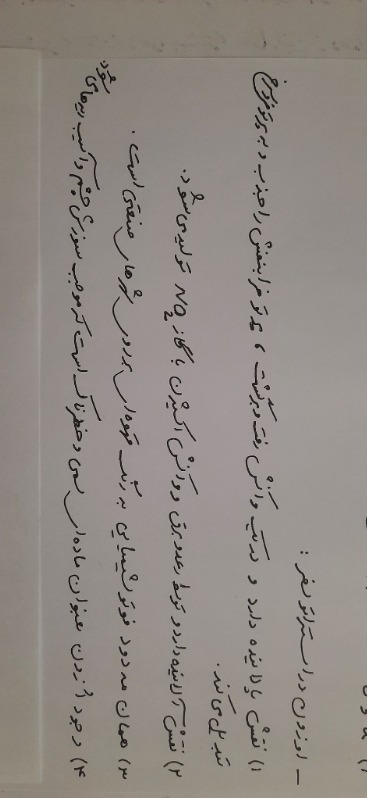 – اوزون در استراتوسفر :
۱) نقش پالاینده دارد و در یک واکنش رفت و برگشت ، پرتو فرابنفش را جذب و به پرتو فروسرخ
تبدیل می‌کند.
۲) نقش آلاینده دارد و توسط رعد و برق و واکنش اکسیژن با گاز NO₂ تولید می‌شود.
۳) همان مه دود فوتوشیمیایی به رنگ قهوه‌ای بر روی شهرهای صنعتی است .
۴) وجود اوزون بعنوان ماده‌ای سمی و خطرناک است که موجب سوزش چشم و آسیب ریه‌ها می
شود